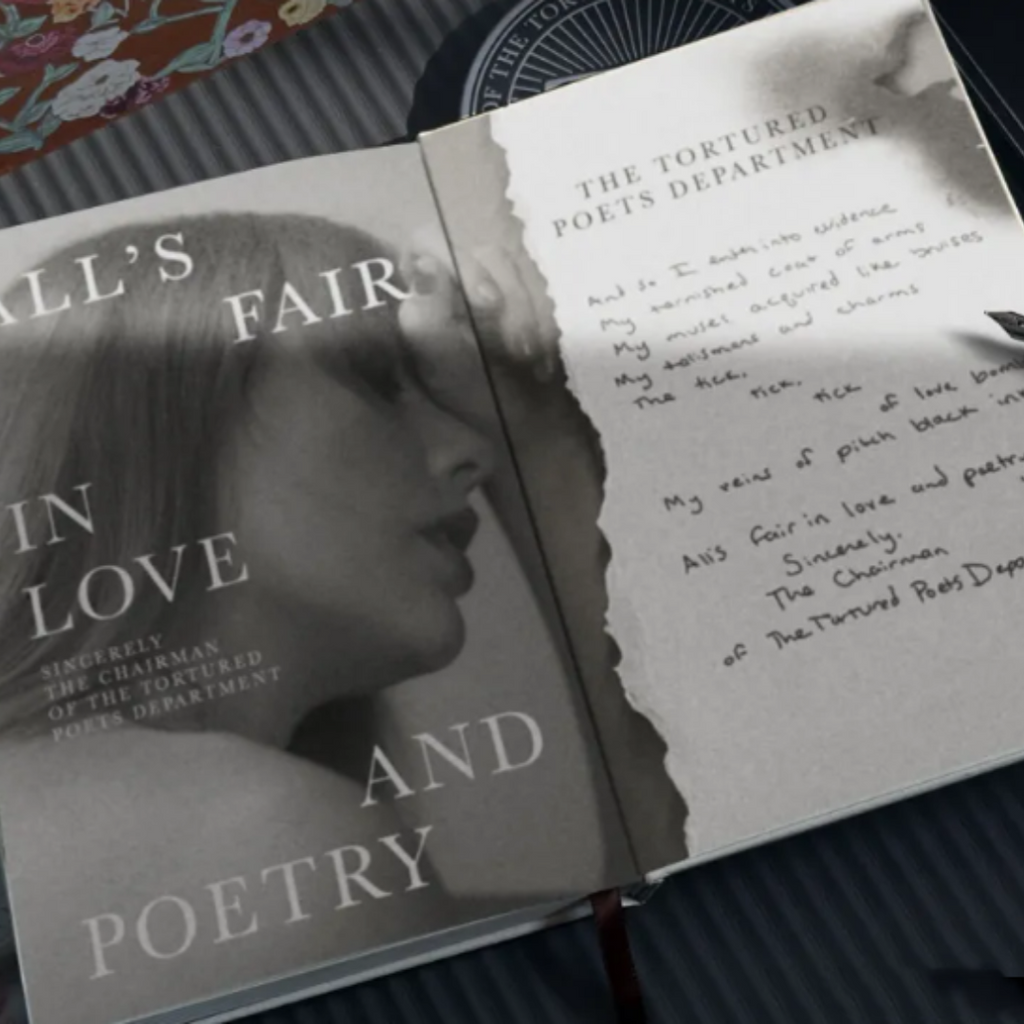 OF THE TOR
ALL'S
FAIR
IN
LOVE
SINCERELY
THE CHAIRMAN
OF THE TORTURED
POETS DEPARTMENT
AND
POETRY
THE TORTURED
POETS DEPARTMENT
And so I enter into evidence
My tarnished coat of arms
My muses acquired like bruises
My talismans and charms
The tick,
tick,
tick
of love bomb
My veins of pitch black ink
All's fair in love and poetry
Sincerely.
The Chairman
of The Tortured Poets Depa